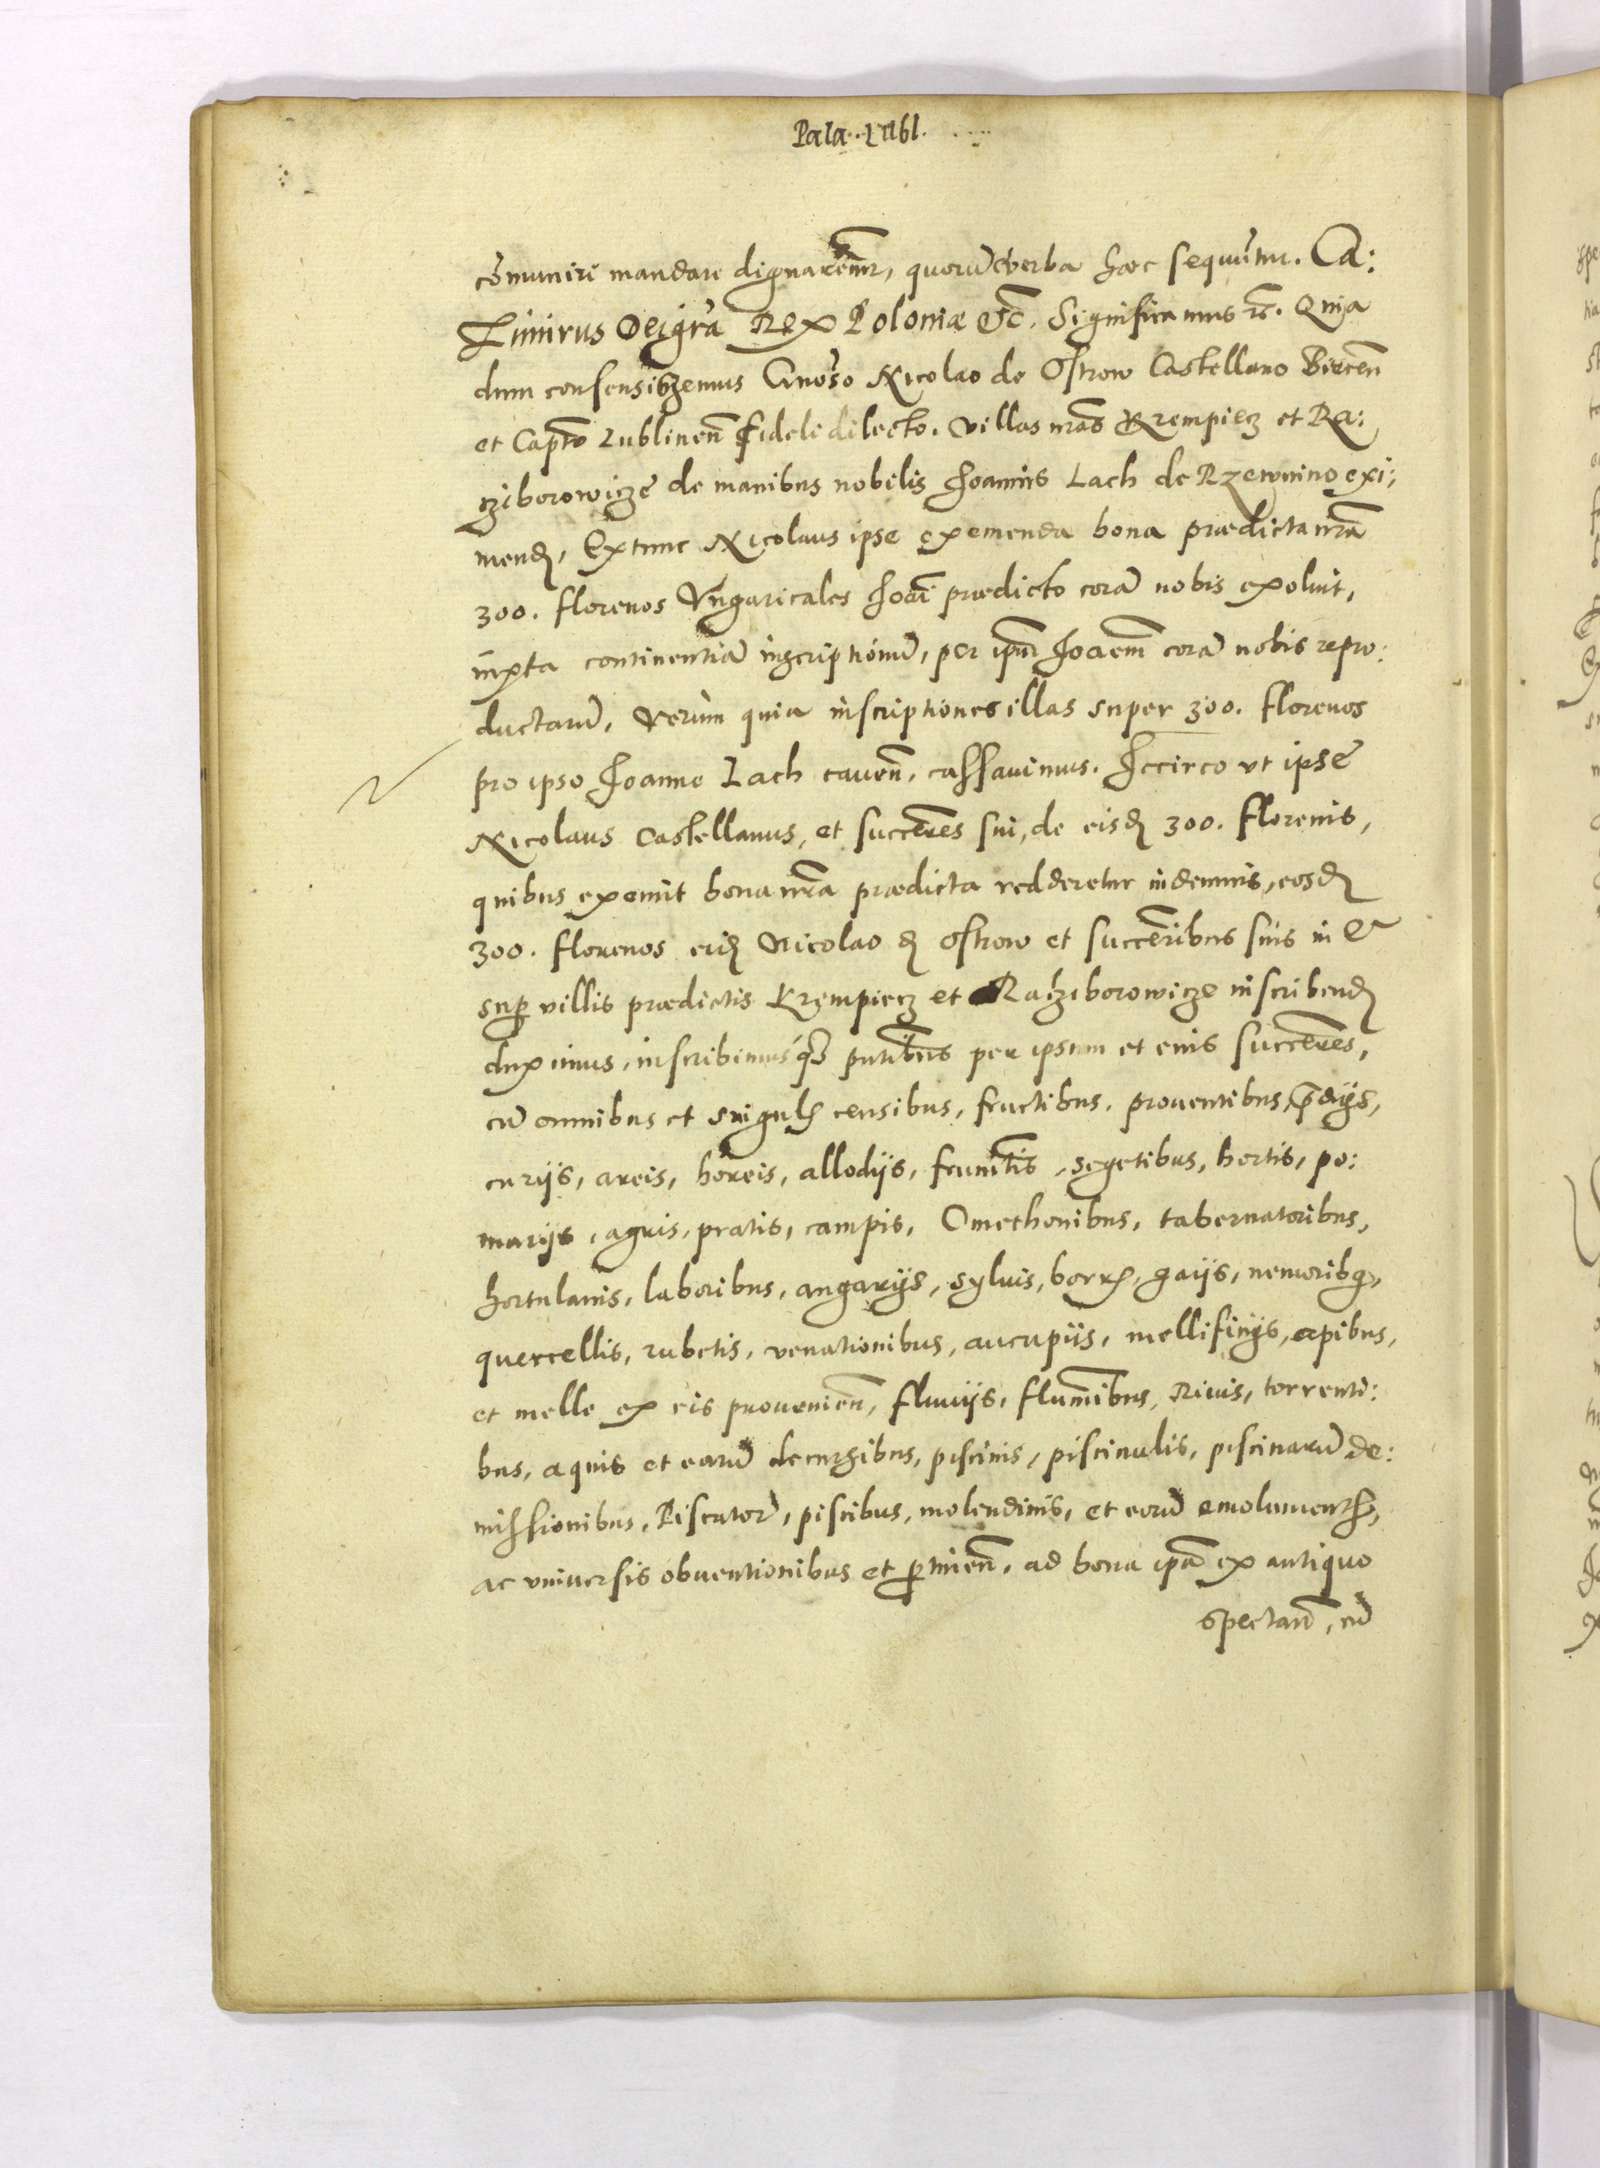 Pala. Lubl.
cõmuniri mandare dignaremur, quorũ verba hæc sequũtur. Ca:
zimirus Dei gra Rex Poloniæ &c. Significamus &c. Quia
dum consensissemus Gnoso Nicolao de Ostrow Castellano
et Capto Lublinen̄ fideli dilecto. villas nrãs Krempiecz et Ra:
cziborowicze de manibus nobilis Joannis Lach de exi:
mend, Extunc Nicolaus ipse exemenda bona prædicta nrã
300. florenos Vngaricales Joañi prædicto corã nobis exoluit,
iuxta continentiã inscriptionũ, per ipm̃ Joaem̃ corã nobis repro:
ductarũ, Verùm quia inscriptiones illas super 300. florenos
pro ipso Joanne Lach cauen̄, cassauimus. Iccirco vt ipse
Nicolaus Castellanus, et succeres sui, de eisd 300. florenis,
quibus exemit bona nrã prædicta redderetur indemnis, eosd
300. florenos eid Nicolao d Ostrow et succeribus suis in &
sup villis prædictis Krempiecz et Racziborowicze inscribend
duximus, inscribimusq̃ pntibus per ipsum et eius succeres,
cũ omnibus et singulis censibus, fructibus, prouentibus, p̃dijs,
curijs, areis, horeis, allodijs, frumtis, segetibus, hortis, po:
marijs, agris, pratis, campis, Cmethonibus, tabernatoribus,
hortulanis, laboribus, angarijs, syluis, borris, gaijs, nemoribq,
quercellis, rubetis, venationibus, aucupijs, mellificijs, apibus,
et melle ex eis prouenien̄, fluuijs, flumĩbus, Riuis, torrenti:
bus, aquis et earũ decursibus, piscinis, piscinulis, piscinarũ de:
missionibus, Piscatorũ, piscibus, molendinis, et eorũ emolumentis,
ac vniuersis obuentionibus et ptinen̄, ad bona ipã ex antiquo
spectan̄, cũ